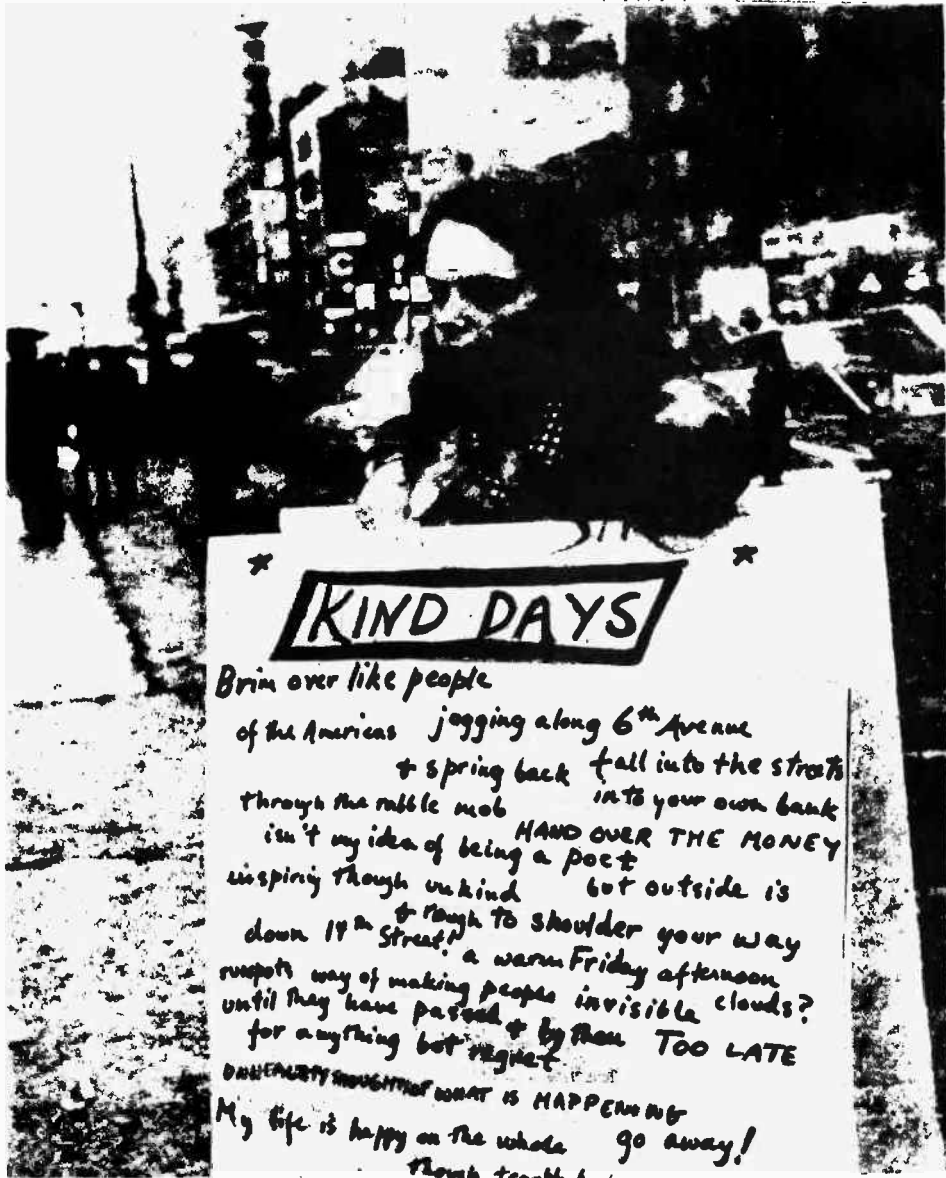 * KIND DAYS *
Brim over like people
of the Americas jogging along 6th Avenue
+ spring back fall into the streets
through the rabble mob into your own bank
HAND OVER THE MONEY
isn't my idea of being a poet
inspiring though unkind but outside is
+ rough to shoulder your way
down 14th Street! a warm Friday afternoon
way of making people invisible clouds?
until they have passed + by then TOO LATE
for anything but regret
UNHEALTHY THOUGHTS OF WHAT IS HAPPENING
My life is happy on the whole go away!
though